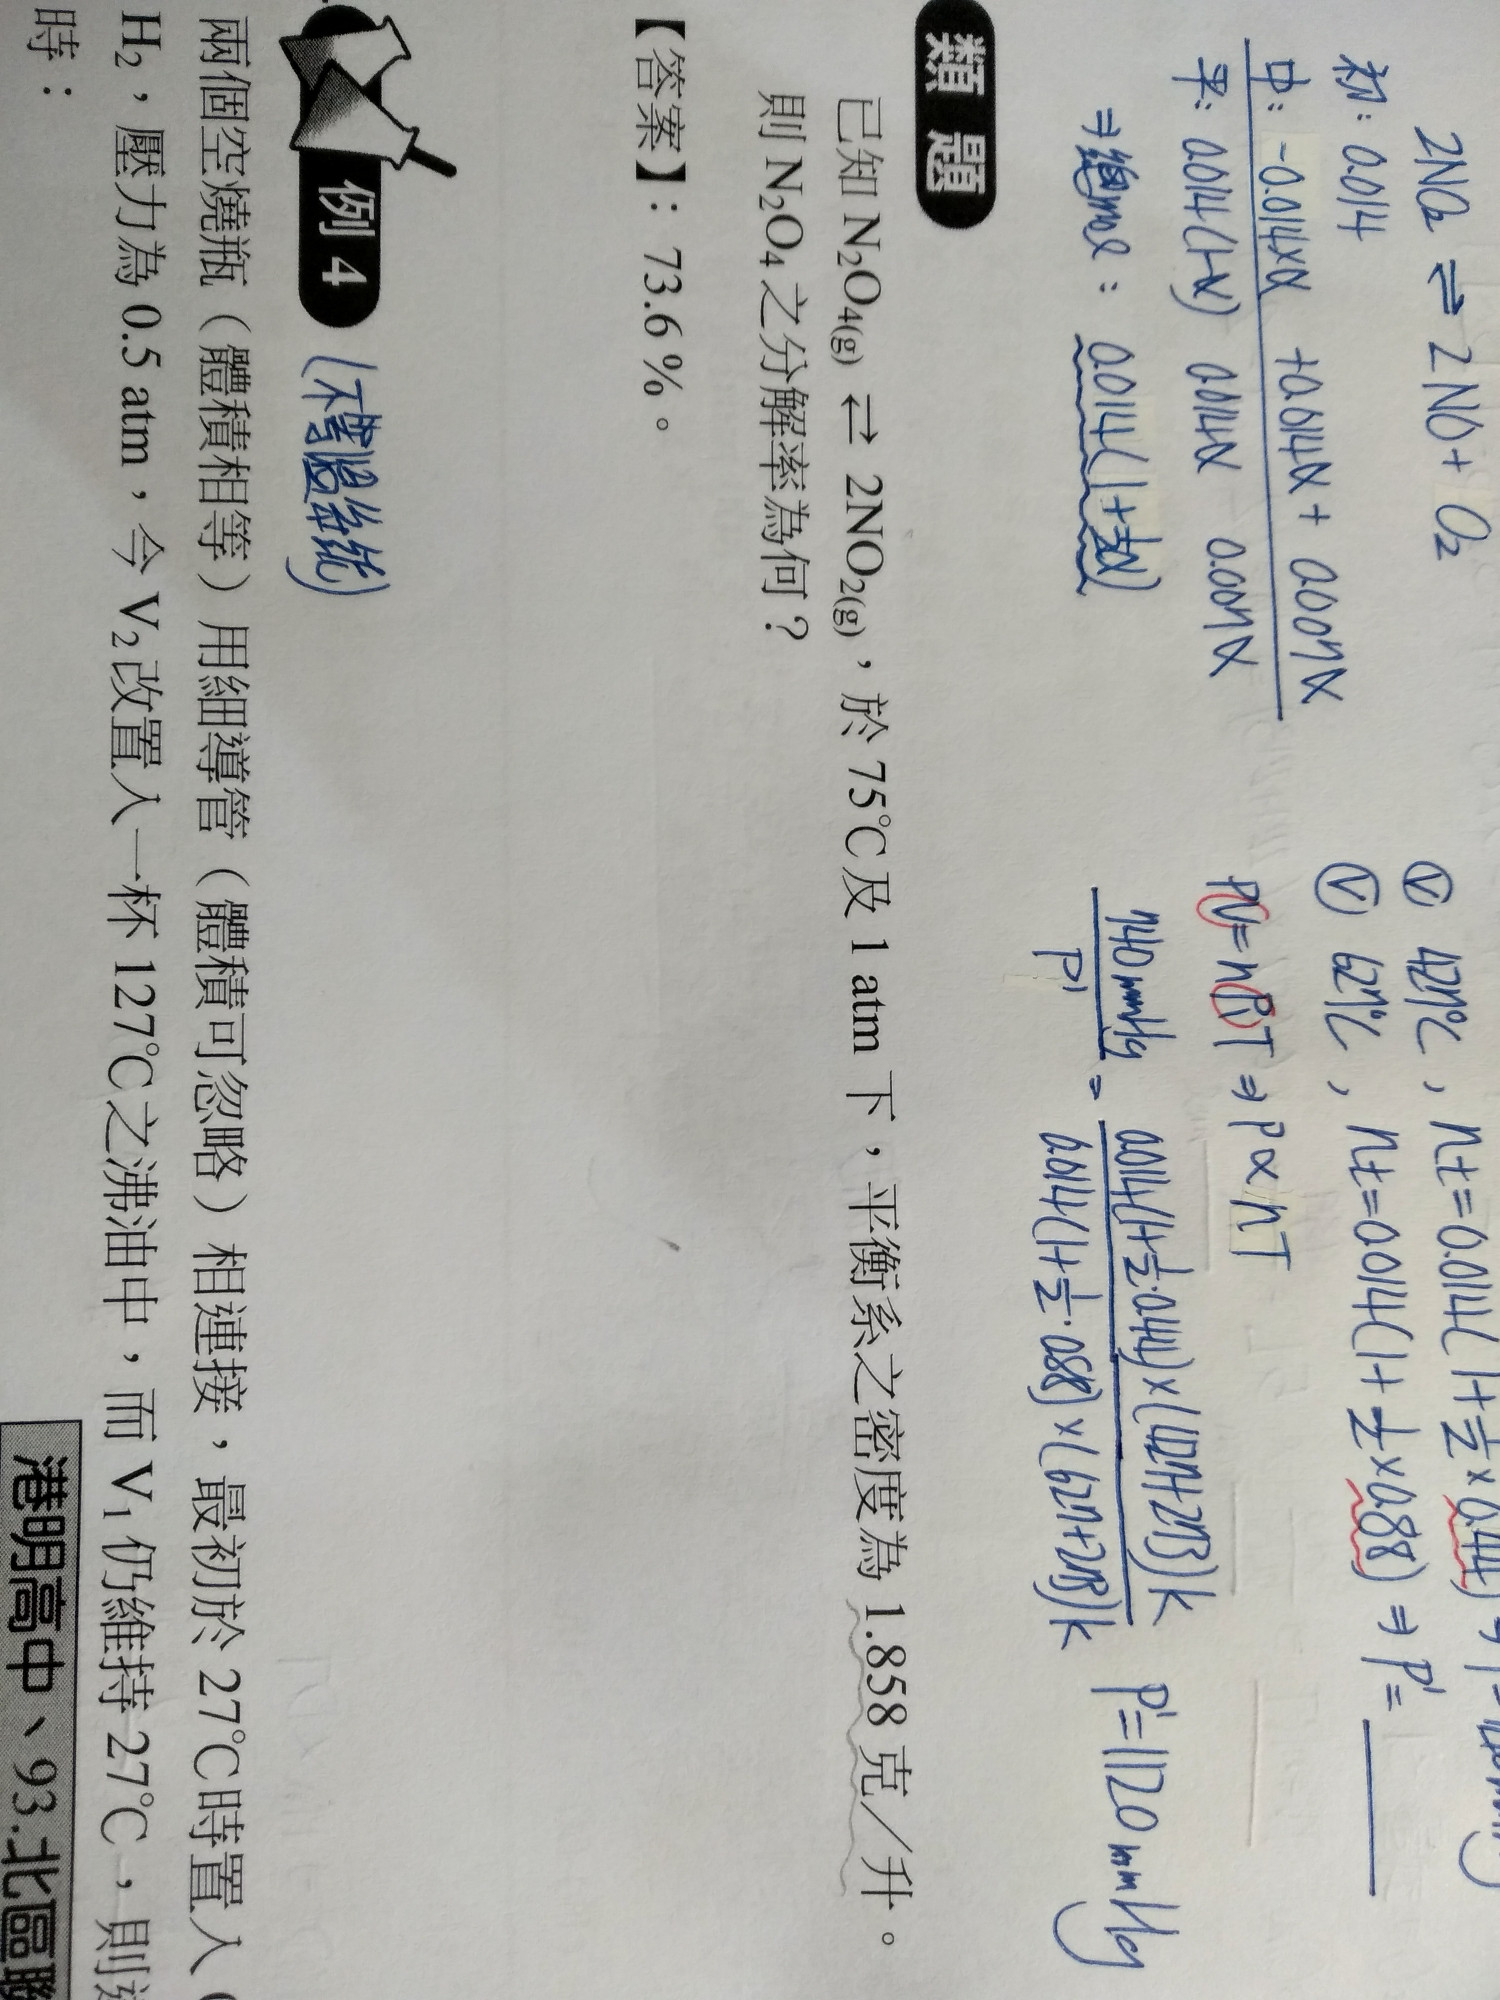 2NO₂ ⇌ 2NO + O₂
初: 0.014
中: -0.014×α +0.014α + 0.007α
平: 0.014(1-α) 0.014α 0.007α
⇒總mol: 0.014(1+½α)
Ⓥ 427℃, nt=0.014(1+½×0.44)
Ⓥ 627℃, nt=0.014(1+½×0.88) ⇒ P'=
PV=nRT ⇒ P∝nT
740mmHg/P' = 0.014(1+½·0.44)×(427+273)k/0.014(1+½·0.88)×(627+273)k P'=1120mmHg
類題
已知 N₂O₄(g) ⇄ 2NO₂(g),於 75℃及 1 atm 下,平衡系之密度為 1.858 克/升。
則 N₂O₄ 之分解率為何?
【答案】:73.6%。
例 4 (不等溫系統)
兩個空燒瓶(體積相等)用細導管(體積可忽略)相連接,最初於 27℃時置入
H₂,壓力為 0.5 atm,今 V₂ 改置入一杯 127℃之沸油中,而 V₁ 仍維持 27℃,則
時:
港明高中、93.北區聯